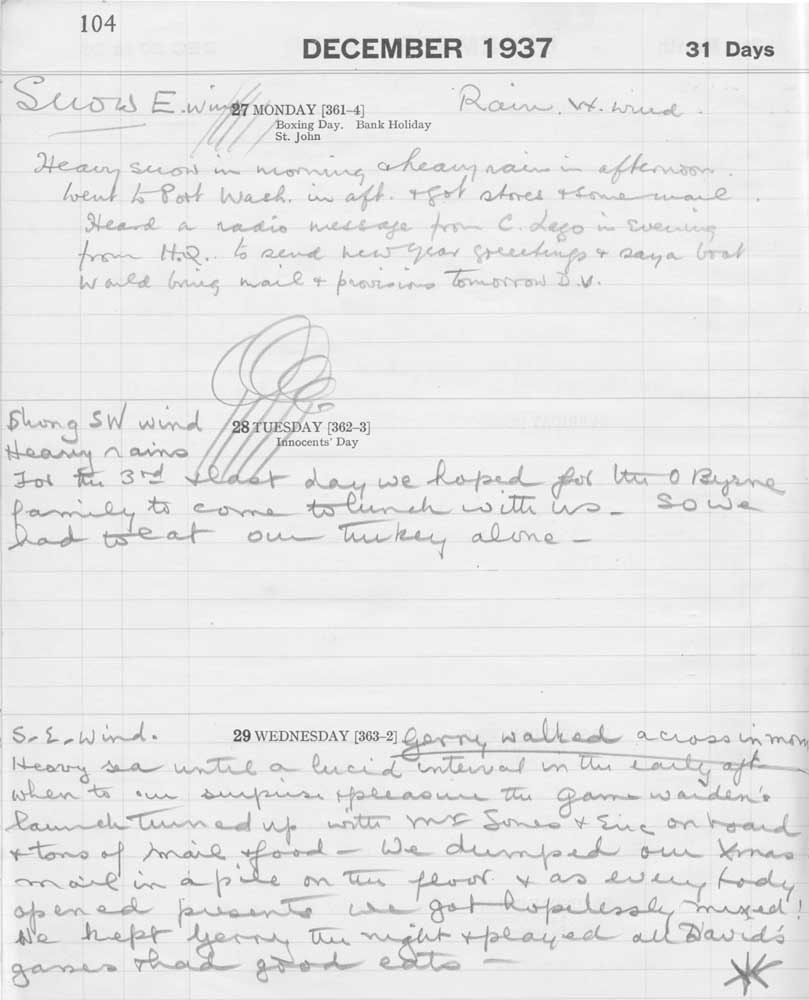 104
DECEMBER 1937 31 Days
Snow E. wind 27 MONDAY [361-4] Rain. W. wind.
Boxing Day. Bank Holiday
St. John
Heavy snow in morning & heavy rain in afternoon.
Went to Port Wash. in aft. & got stores & some mail.
Heard a radio message from C. Lego in evening
from H.Q. to send new year greetings & say a boat
would bring mail & provisions tomorrow D.V.
Strong SW wind 28 TUESDAY [362-3]
Innocents' Day
Heavy rains
For the 3rd & last day we hoped for the O Byrne
family to come to lunch with us - So we
had to eat our Turkey alone -
S.E. wind. 29 WEDNESDAY [363-2] Gerry walked across in morn
Heavy sea until a lucid interval in the early aft
when to our surprise & pleasure the Game warden's
launch turned up with Mr Jones & Eric on board
& tons of mail & food - We dumped our Xmas
mail in a pile on the floor & as every body
opened presents we got hopelessly mixed!
We kept Gerry the night & played all David's
games & had good eats -